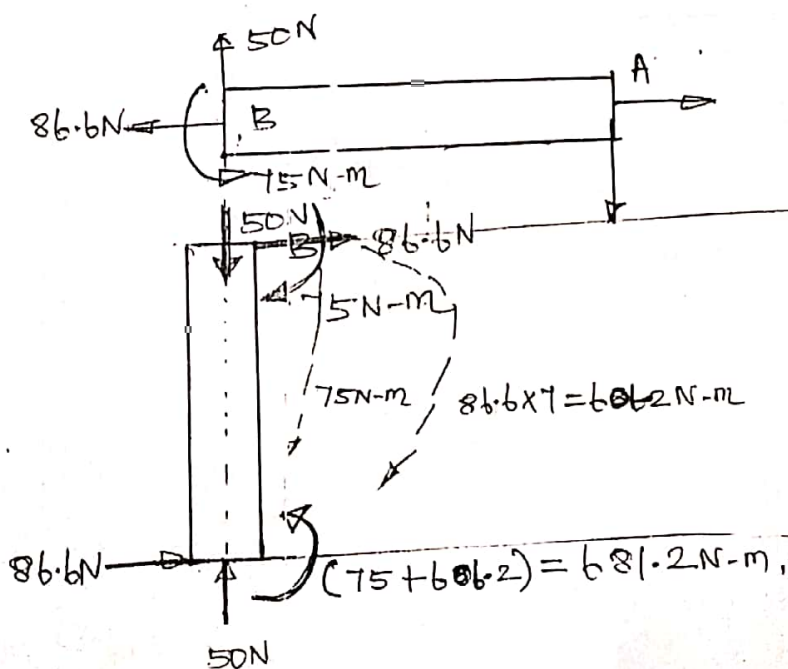 50N
A
86.6N
B
75N-m
50N
B
86.6N
75N-m
75N-m
86.6×7=606.2N-m
86.6N
(75+606.2)=681.2N-m.
50N